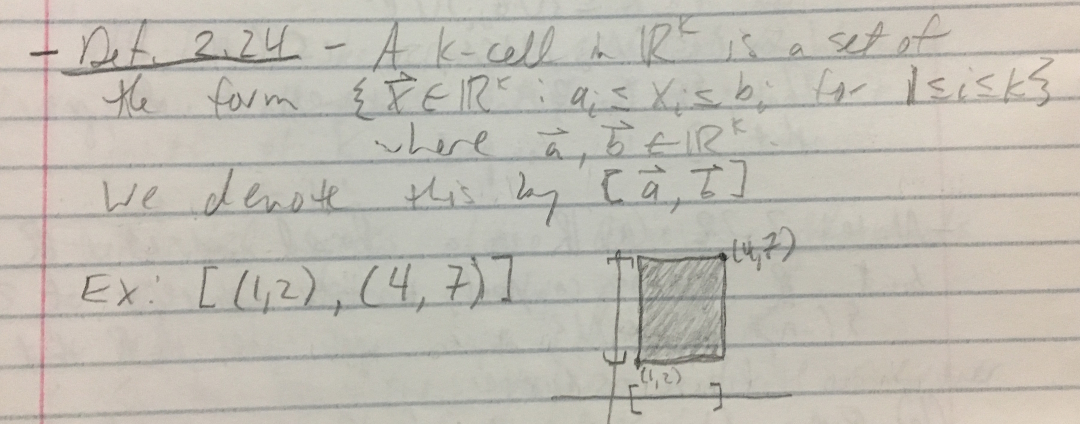 - Def. 2.24 - A k-cell in ℝᵏ is a set of
the form {x⃗ ∈ ℝᵏ : aᵢ ≤ xᵢ ≤ bᵢ for 1 ≤ i ≤ k}
where a⃗, b⃗ ∈ ℝᵏ.
We denote this by [a⃗, b⃗]
Ex: [(1,2), (4,7)]
(4,7)
(1,2)